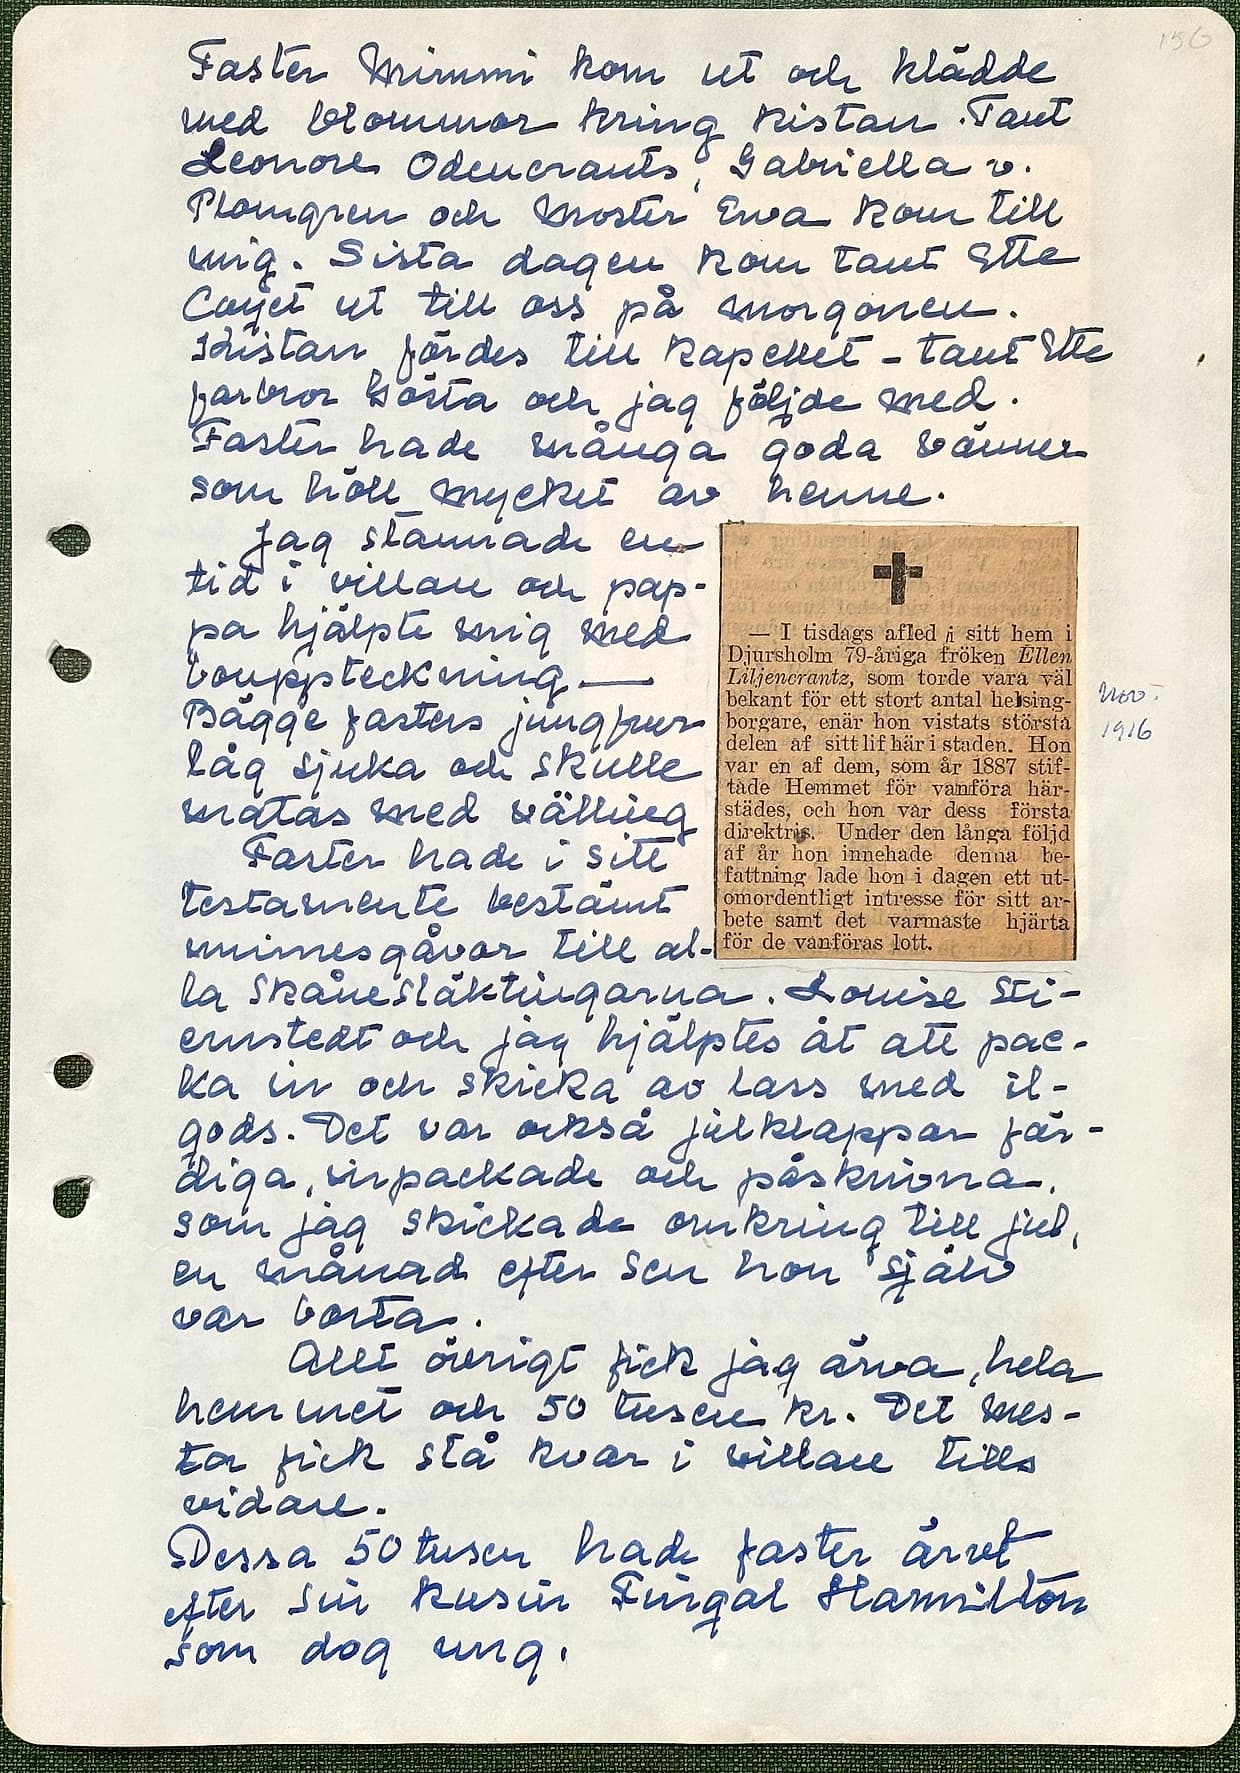 156
Faster Mimmi kom ut och klädde
med blommor kring kistan. Tant
Leonore Odencrants, Gabriella v.
Plomgren och Moster Ewa kom till
mig. Sista dagen kom tant Ette
Coyet ut till oss på morgonen.
Kistan fördes till kapellet - tant Ette
farbror Gösta och jag följde med.
Faster hade många goda vänner
som höll mycket av henne.
Jag stannade en
tid i villan och pap-
pa hjälpte mig med
bouppteckning —
Bägge fasters jungfrur
låg sjuka och skulle
matas med välling
Faster hade i sitt
testamente bestämt
minnesgåvor till al-
la Skånesläktingarna. Louise Sti-
ernstedt och jag hjälptes åt att pac-
ka in och skicka av lass med il-
gods. Det var också julklappar fär-
diga, inpackade och påskrivna,
som jag skickade omkring till jul,
en månad efter sen hon själv
var borta.
Allt övrigt fick jag ärva, hela
hemmet och 50 tusen kr. Det mes-
ta fick stå kvar i villan tills
vidare.
Dessa 50 tusen hade faster ärvt
efter sin kusin Fingal Hamilton
som dog ung.
— I tisdags afled i sitt hem i
Djursholm 79-åriga fröken Ellen
Liljencrantz, som torde vara väl
bekant för ett stort antal helsing-
borgare, enär hon vistats största
delen af sitt lif här i staden. Hon
var en af dem, som år 1887 stif-
tade Hemmet för vanföra här-
städes, och hon var dess första
direktris. Under den långa följd
af år hon innehade denna be-
fattning lade hon i dagen ett ut-
omordentligt intresse för sitt ar-
bete samt det varmaste hjärta
för de vanföras lott.
Nov.
1916